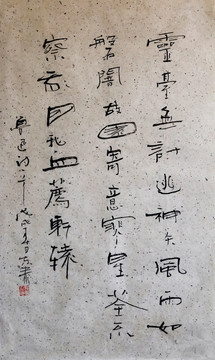 靈臺無計逃神矢風雨如
磐闇故園寄意寒星荃不
察我以我血薦軒轅
魯迅詩一